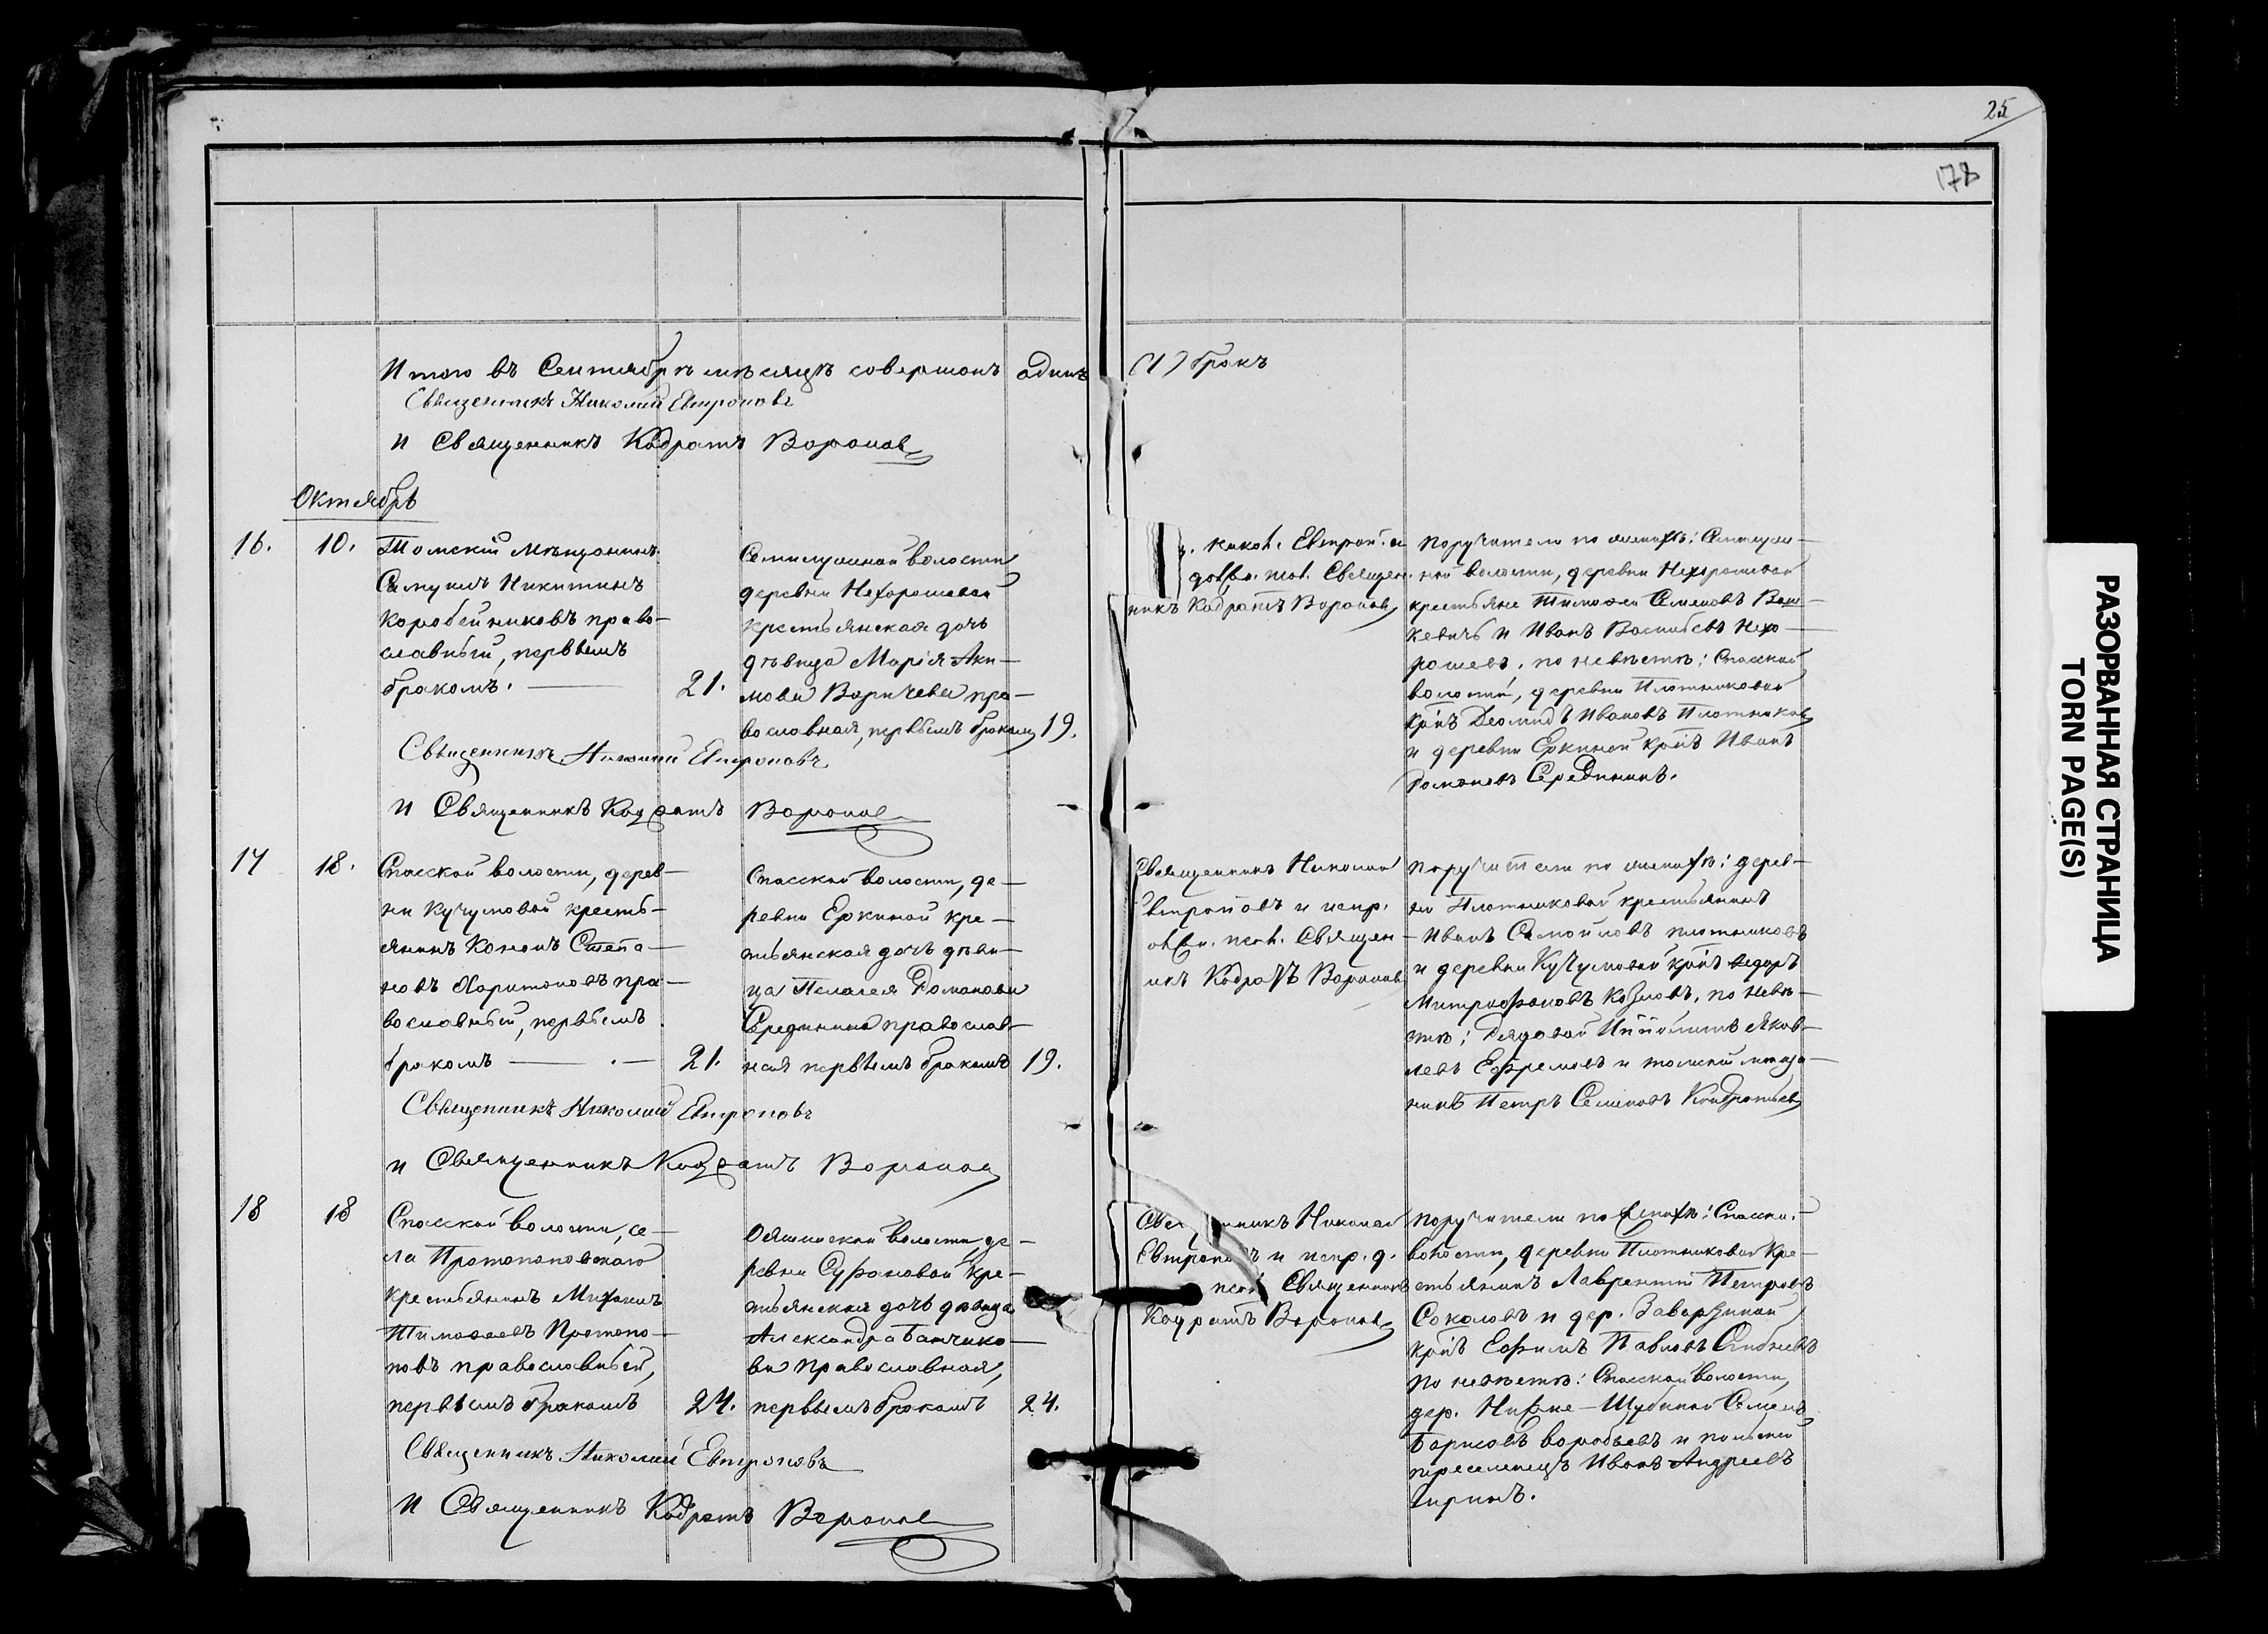 25
178
Итого въ Сентябрѣ мѣсяцѣ совершонъ одинъ (1) бракъ
Священникъ Николай Евтроповъ
и Священникъ Кодратъ Воронов
Октябрь
16. 10.
Томскій Мѣщанинъ
Самуилъ Никитинъ
Коробейниковъ право-
славный, первымъ
бракомъ. — 21.
Семилужной волости
деревни Нехорошевой
крестьянская дочь
дѣвица Марія Аки-
мова Воричева пра-
вославная, первымъ бракомъ 19.
Священникъ Николай Евтроповъ
и Священникъ Кодратъ Воронов
. Никол. Евтроп. и
Священ-
никъ Кодратъ Воронов
Поручители по женихѣ: Семилуж-
ной волости, деревни Нехорошевой
крестьяне Тимофей Семеновъ Вош-
кевичъ и Иванъ Васильевъ Нехо-
рошевъ, по невѣстѣ: Спасской
волости, деревни Плотниковой
кр-нъ Деомидъ Ивановъ Плотников
и деревни Еркиной кр-нъ Иванъ
Романовъ Серединин.
17 18.
Спасской волости, дерев-
ни Кучумовой кресть-
янинъ Кононъ Степа-
новъ Харитоновъ пра-
вославный, первымъ
бракомъ — 21.
Спасской волости, де-
ревни Еркиной кре-
стьянская дочь дѣви-
ца Пелагея Романова
Середнина православ-
ная первымъ бракомъ 19.
Священникъ Николай Евтроповъ
и Священникъ Кодратъ Воронов
Священникъ Николай
Евтроповъ и испр.
псал. Священ-
никъ Кодратъ Воронов
Поручители по женихѣ: дерев-
ни Плотниковой крестьянинъ
Иванъ Самойловъ Плотниковъ
и деревни Кучумовой кр-нъ Ѳедоръ
Митрофановъ Козловъ, по невѣ-
стѣ: Рядовой Ипполитъ Яков-
левъ Ефремовъ и томскій мѣща-
нинъ Петръ Семеновъ Кондратьев
18 18
Спасской волости, се-
ла Протопоповскаго
крестьянинъ Михаилъ
Тимофеевъ Протопо-
повъ православный,
первымъ бракомъ 24.
Ояшинской волости, де-
ревни кре-
стьянская дочь дѣвица
Александра Банчико-
ва православная,
первымъ бракомъ 24.
Священникъ Николай Евтроповъ
и Священникъ Кодратъ Воронов
Священникъ Николай
Евтроповъ и испр. д.
псал. Священникъ
Кодратъ Воронов
Поручители по женихѣ: Спасск.
волости, деревни Плотниковой кре-
стьянинъ Лаврентій Петровъ
Соколовъ и дер. Заварзиной
кр-нъ Ефимъ Павловъ
по невѣстѣ: Спасской волости,
дер. Нижне-Шубиной Семенъ
Борисовъ Воробьевъ и
переселенецъ Иванъ Андреевъ
РАЗОРВАННАЯ СТРАНИЦА
TORN PAGE(S)